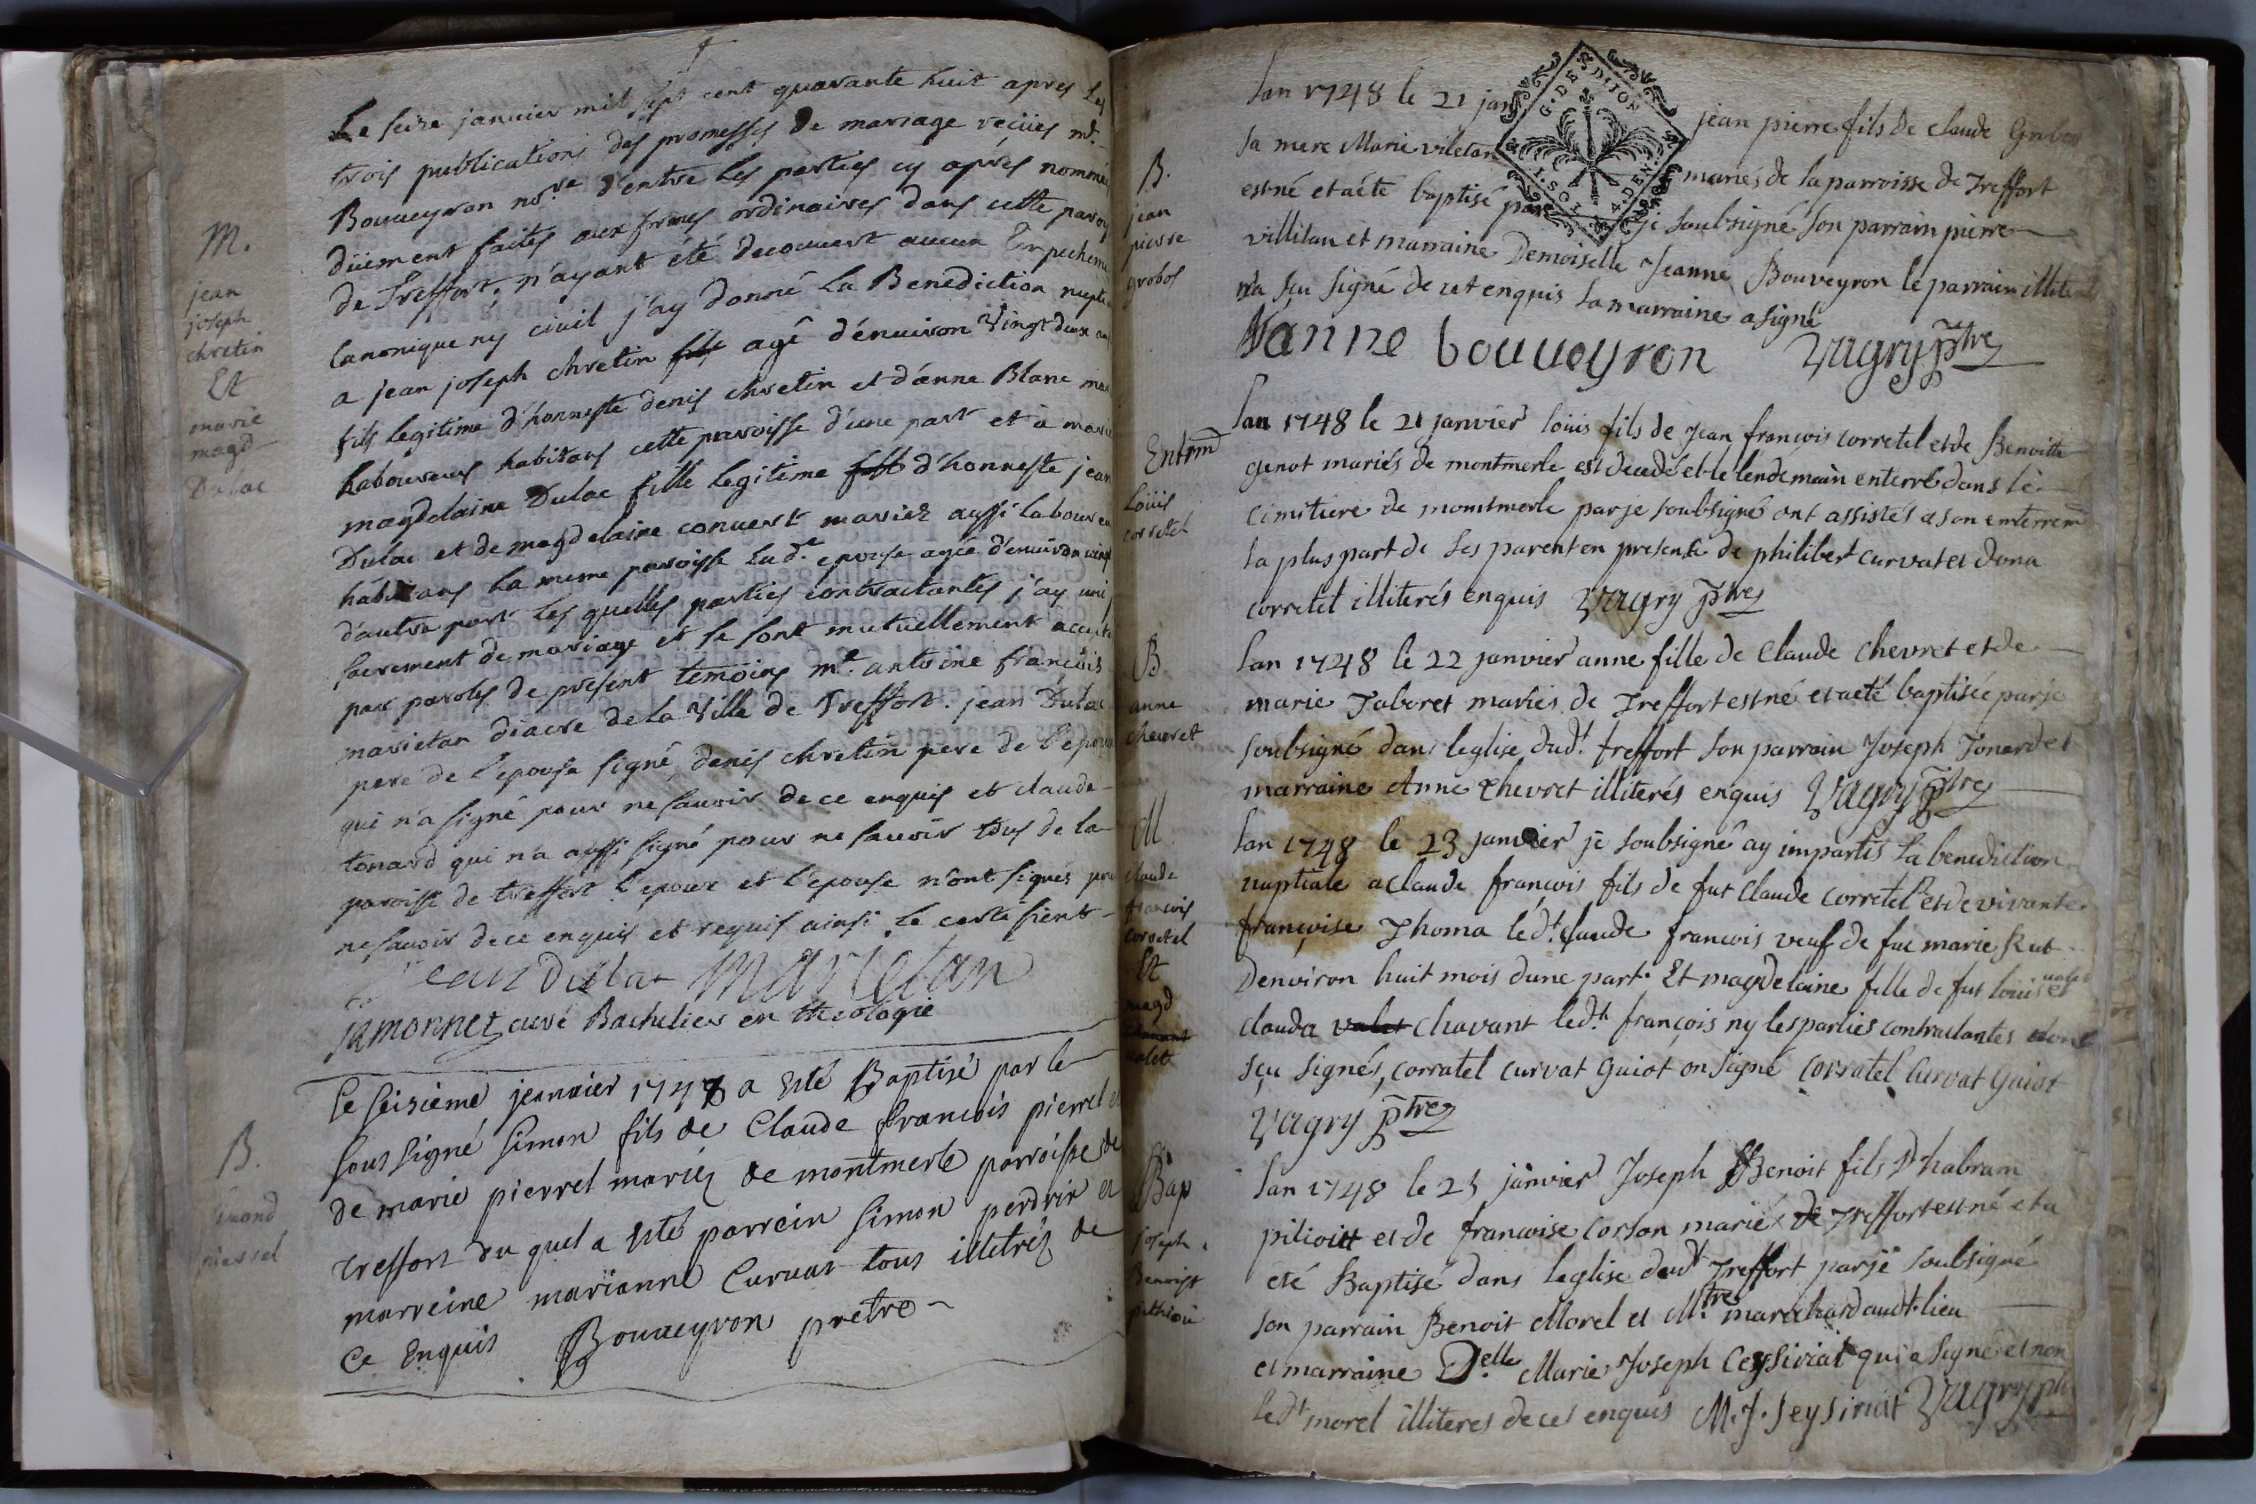 M.
jean
joseph
chretin
Et
marie
magd
Dulac
Le seize janvier mil sept cent quarante huit apres les
trois publications des promesses de mariage reçües mr.
Bouveyron no.re d'entre les parties cy aprés nommé
düement faites aux formes ordinaires dans cette paroi
de Treffort, n'ayant été decouvert aucun Empecheme
Canonique ny civil j'ay donné La Benediction nupti
a jean joseph chretin fils agé d'environ Vingt deux an
fils legitime d'honneste denis chretin et d'anne Blanc mar
Laboureurs habitans cette paroisse d'une part et à marie
magdelaine Dulac fille legitime d'honneste jean
Dulac et de magdelaine convert mariez aussi laboureu
habitans La meme paroisse Lad.e epouse agée d'environ vingt
d'autre part Les quelles parties contractantes j'ay uni
sacrement de mariage et se sont mutuellement accepté
par paroles de present temoins mr. antoine francois
marietan diacre de la Ville de Treffort. jean Dulac
pere de l'epouse signé, denis chretin pere de l'epoux
qui n'a signé pour ne sauoir de ce enquis et claude
tonard qui n'a aussi signé pour ne sauoir tous de la
paroisse de treffort l'epoux et l'epouse n'ont signés pour
ne sauoir de ce enquis et requis ainsi Le certifient
jean dulac Marietan
jamonnet curé Bachelier en theologie
B.
simond
pierrel
Le seizième jeanvier 1748 a Esté Baptisé par le
sous signé simon fils de Claude francois pierrel et
de marie pierrel mariéz de montmerle parroisse de
treffort du quel a Esté parrein simon perdrix et
marreine marianne Curvat tous illetréz de
Ce Enquis Bouveyron pretre
B.
jean
pierre
grobos
G. DE DIJON
1. SOL 4 DEN.
Lan 1748 le 21 jan jean pierre fils de claude Grobos
sa mere Marie viletan mariés de la parroisse de Treffort
est né et a été baptisé par je soubsigné son parrain pierre
villitan et marraine Demoiselle Jeanne Bouveyron le parrain illiteré
n'a sçu signé de cet enquis la marraine a signé
Janne bouveyron Vagry ptre
Enterm
Loüis
corretel
Lan 1748 le 21 janvier loüis fils de Jean françois corretel et de Benoitte
genot mariés de montmerle est decedé et le lendemain enterré dans le
cimitiere de montmerle par je soubsigné ont assistés a son enterrem
la plus part de ses parent en presence de philibert curvat et dona
corretel illiterés enquis Vagry ptre
B.
anne
chevret
Lan 1748 le 22 janvier anne fille de Claude Chevret et de
marie Taboret mariés de Treffort est né et a eté baptisée par je
soubsigné dans leglise dud.t treffort son parrain Joseph Tonard et
marraine Anne Chevret illiterés enquis Vagry ptre
M
claude
francois
corretel
Et
magd
valet
Lan 1748 le 23 janvier je soubsigné ay impartis la benediction
nuptiale a Claude françois fils de fut Claude corretel et de vivante
françoise Thoma léd.t Claude francois veuf de fue marie Rut
Denviron huit mois dune part. Et magdelaine fille de fut louis valet et
clauda valet Chavant led.t françois ny les parties contractantes dont
sçu signés, corratel curvat Guiot on signé Corratel Curvat Guiot
Vagry ptre
Bap
Joseph
Benoist
pithioü
Lan 1748 le 25 janvier Joseph Benoit fils Dhabram
pitioitt et de francoise corson marié de Treffort est né et a
été Baptisé dans leglise dud.t Treffort par je soubsigné
son parrain Benoit Morel et M.tre marechard audt. lieu
et marraine D.elle Marie Joseph Ceysiriat qui a signé et non
led.t morel illiteres de ces enquis M. J. Seysiriat Vagry ptre